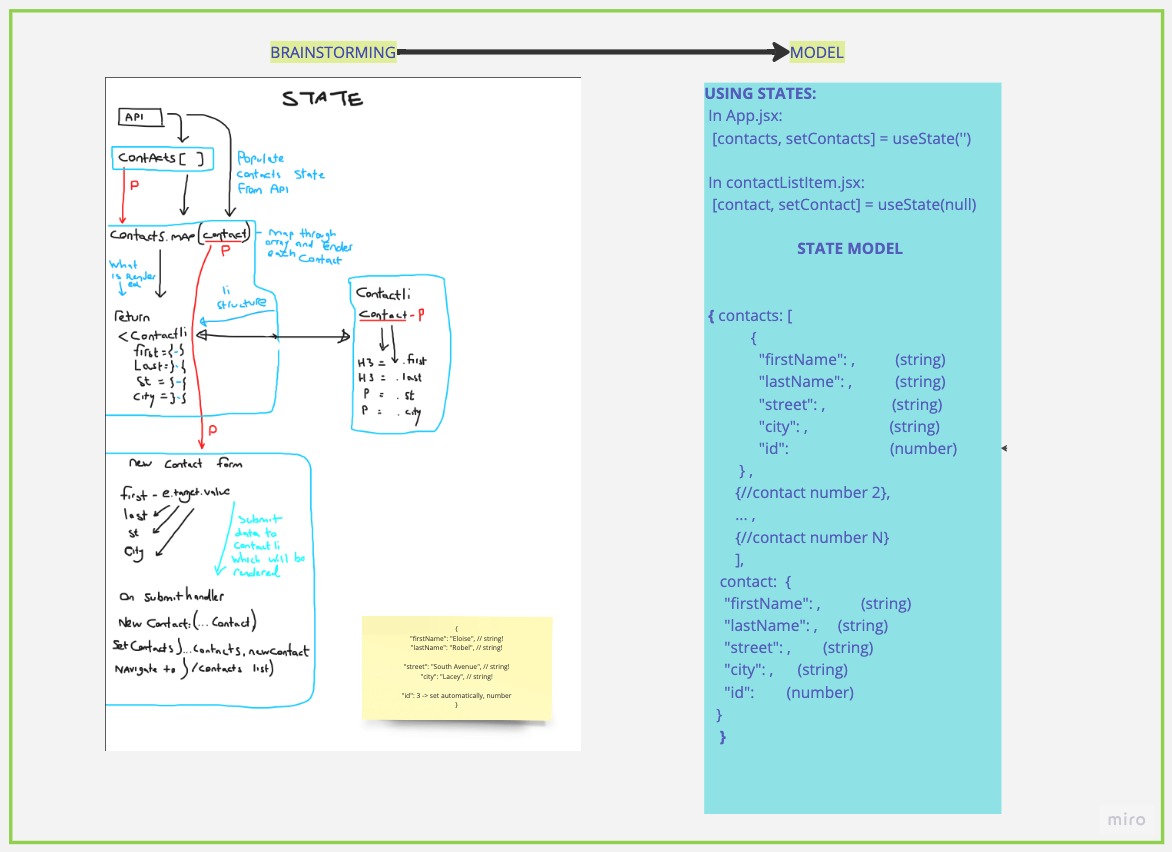 BRAINSTORMING
MODEL
STATE
API
Contacts [ ]
P
Populate
contacts State
From API
Contacts.map(contact)
P
map through
array and render
each contact
What
is render
ed
li
structure
return
<Contactli
first={-}
Last={-}
St = {-}
City ={-}
Contactli
Contact - P
H3 = .first
H3 = .last
P = . st
P = . city
P
New Contact form
first - e.target.value
last
st
City
Submit
data to
contactli
which will be
rendered
On Submit handler
New Contact: (... Contact)
SetContacts )...contacts, newcontact
Navigate to ) /contacts list)
{
"firstName": "Eloise", // string!
"lastName": "Robel", // string!
"street": "South Avenue", // string!
"city": "Lacey", // string!
"id": 3 -> set automatically, number
}
USING STATES:
In App.jsx:
[contacts, setContacts] = useState('')
In contactListItem.jsx:
[contact, setContact] = useState(null)
STATE MODEL
{ contacts: [
{
"firstName": , (string)
"lastName": , (string)
"street": , (string)
"city": , (string)
"id": (number)
} ,
{//contact number 2},
... ,
{//contact number N}
],
contact: {
"firstName": , (string)
"lastName": , (string)
"street": , (string)
"city": , (string)
"id": (number)
}
}
miro